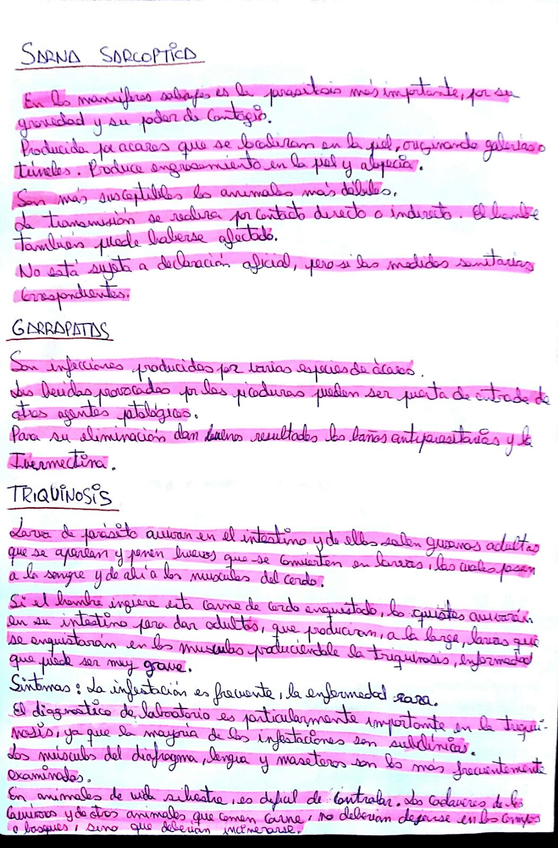 SARNA SARCOPTICA
En los mamíferos salvajes es la parasitosis más importante, por su
gravedad y su poder de contagio.
Producida por acaros que se localizan en la piel, originando galerias o
túneles. Produce engrosamiento en la piel y alopecia.
Son más susceptibles los animales más débiles.
La transmisión se realiza por contacto directo o indirecto. El hombre
también puede haberse afectado.
No está sujeta a declaración oficial, pero si las medidas sanitarias
correspondientes.
GARRAPATAS
Son infecciones producidas por varias especies de ácaros.
Las heridas provocadas por las picaduras pueden ser puerta de entrada de
otros agentes patológicos.
Para su eliminación dan buenos resultados los baños antiparasitarios y la
Ivermectina.
TRIQUINOSIS
Larva de parásito anivan en el intestino y de ellos salen gusanos adultos
que se aparean y ponen huevos que se convierten en larvas, las cuales pasan
a la sangre y de ahí a los musculos del cerdo.
Si el hombre ingiere esta carne de cerdo enquistado, los quistes anivarán
en su intestino para dar adultos, que produciran, a la larga, larvas que
se enquistarán en los musculos produciéndole la triquinosis, enfermedad
que puede ser muy grave.
Sintomas: La infestación es frecuente, la enfermedad rara.
El diagnostico de laboratorio es particularmente importante en la triqui-
nosis, ya que la mayoria de las infestaciones son subclinicas.
Los musculos del diafragma, lengua y maseteros son los más frecuentemente
examinados.
En animales de vida silvestre, es dificil de controlar. Los cadaveres de los
carnivoros y de otros animales que comen carne, no deberian dejarse en los campos
o bosques, sino que deberian incinerarse.